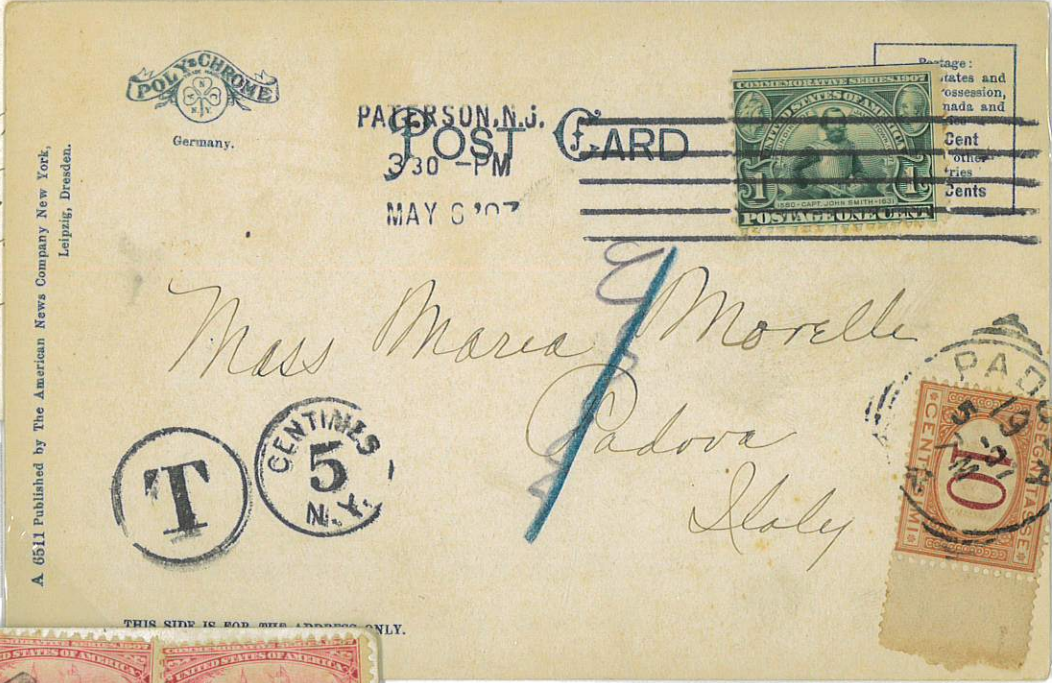 POLY-CHROME
Germany.
A 6511 Published by The American News Company New York,
Leipzig, Dresden.
PATERSON, N.J.
POST CARD
3 30 -PM
MAY 6 '07
Postage:
States and
Possession,
Canada and
Cent
other
Cents
COMMEMORATIVE SERIES 1907
UNITED STATES OF AMERICA
1 1
1580-CAPT. JOHN SMITH-1631
POSTAGE ONE CENT
Mass Maria Morelle
Padova
Italy
T
CENTIMES
5
N.Y.
PADOVA
SEGNATASSE
10
CENTESIMI
THIS SIDE IS FOR THE ADDRESS ONLY.
COMMEMORATIVE SERIES 1907
UNITED STATES OF AMERICA
UNITED STATES OF AMERICA